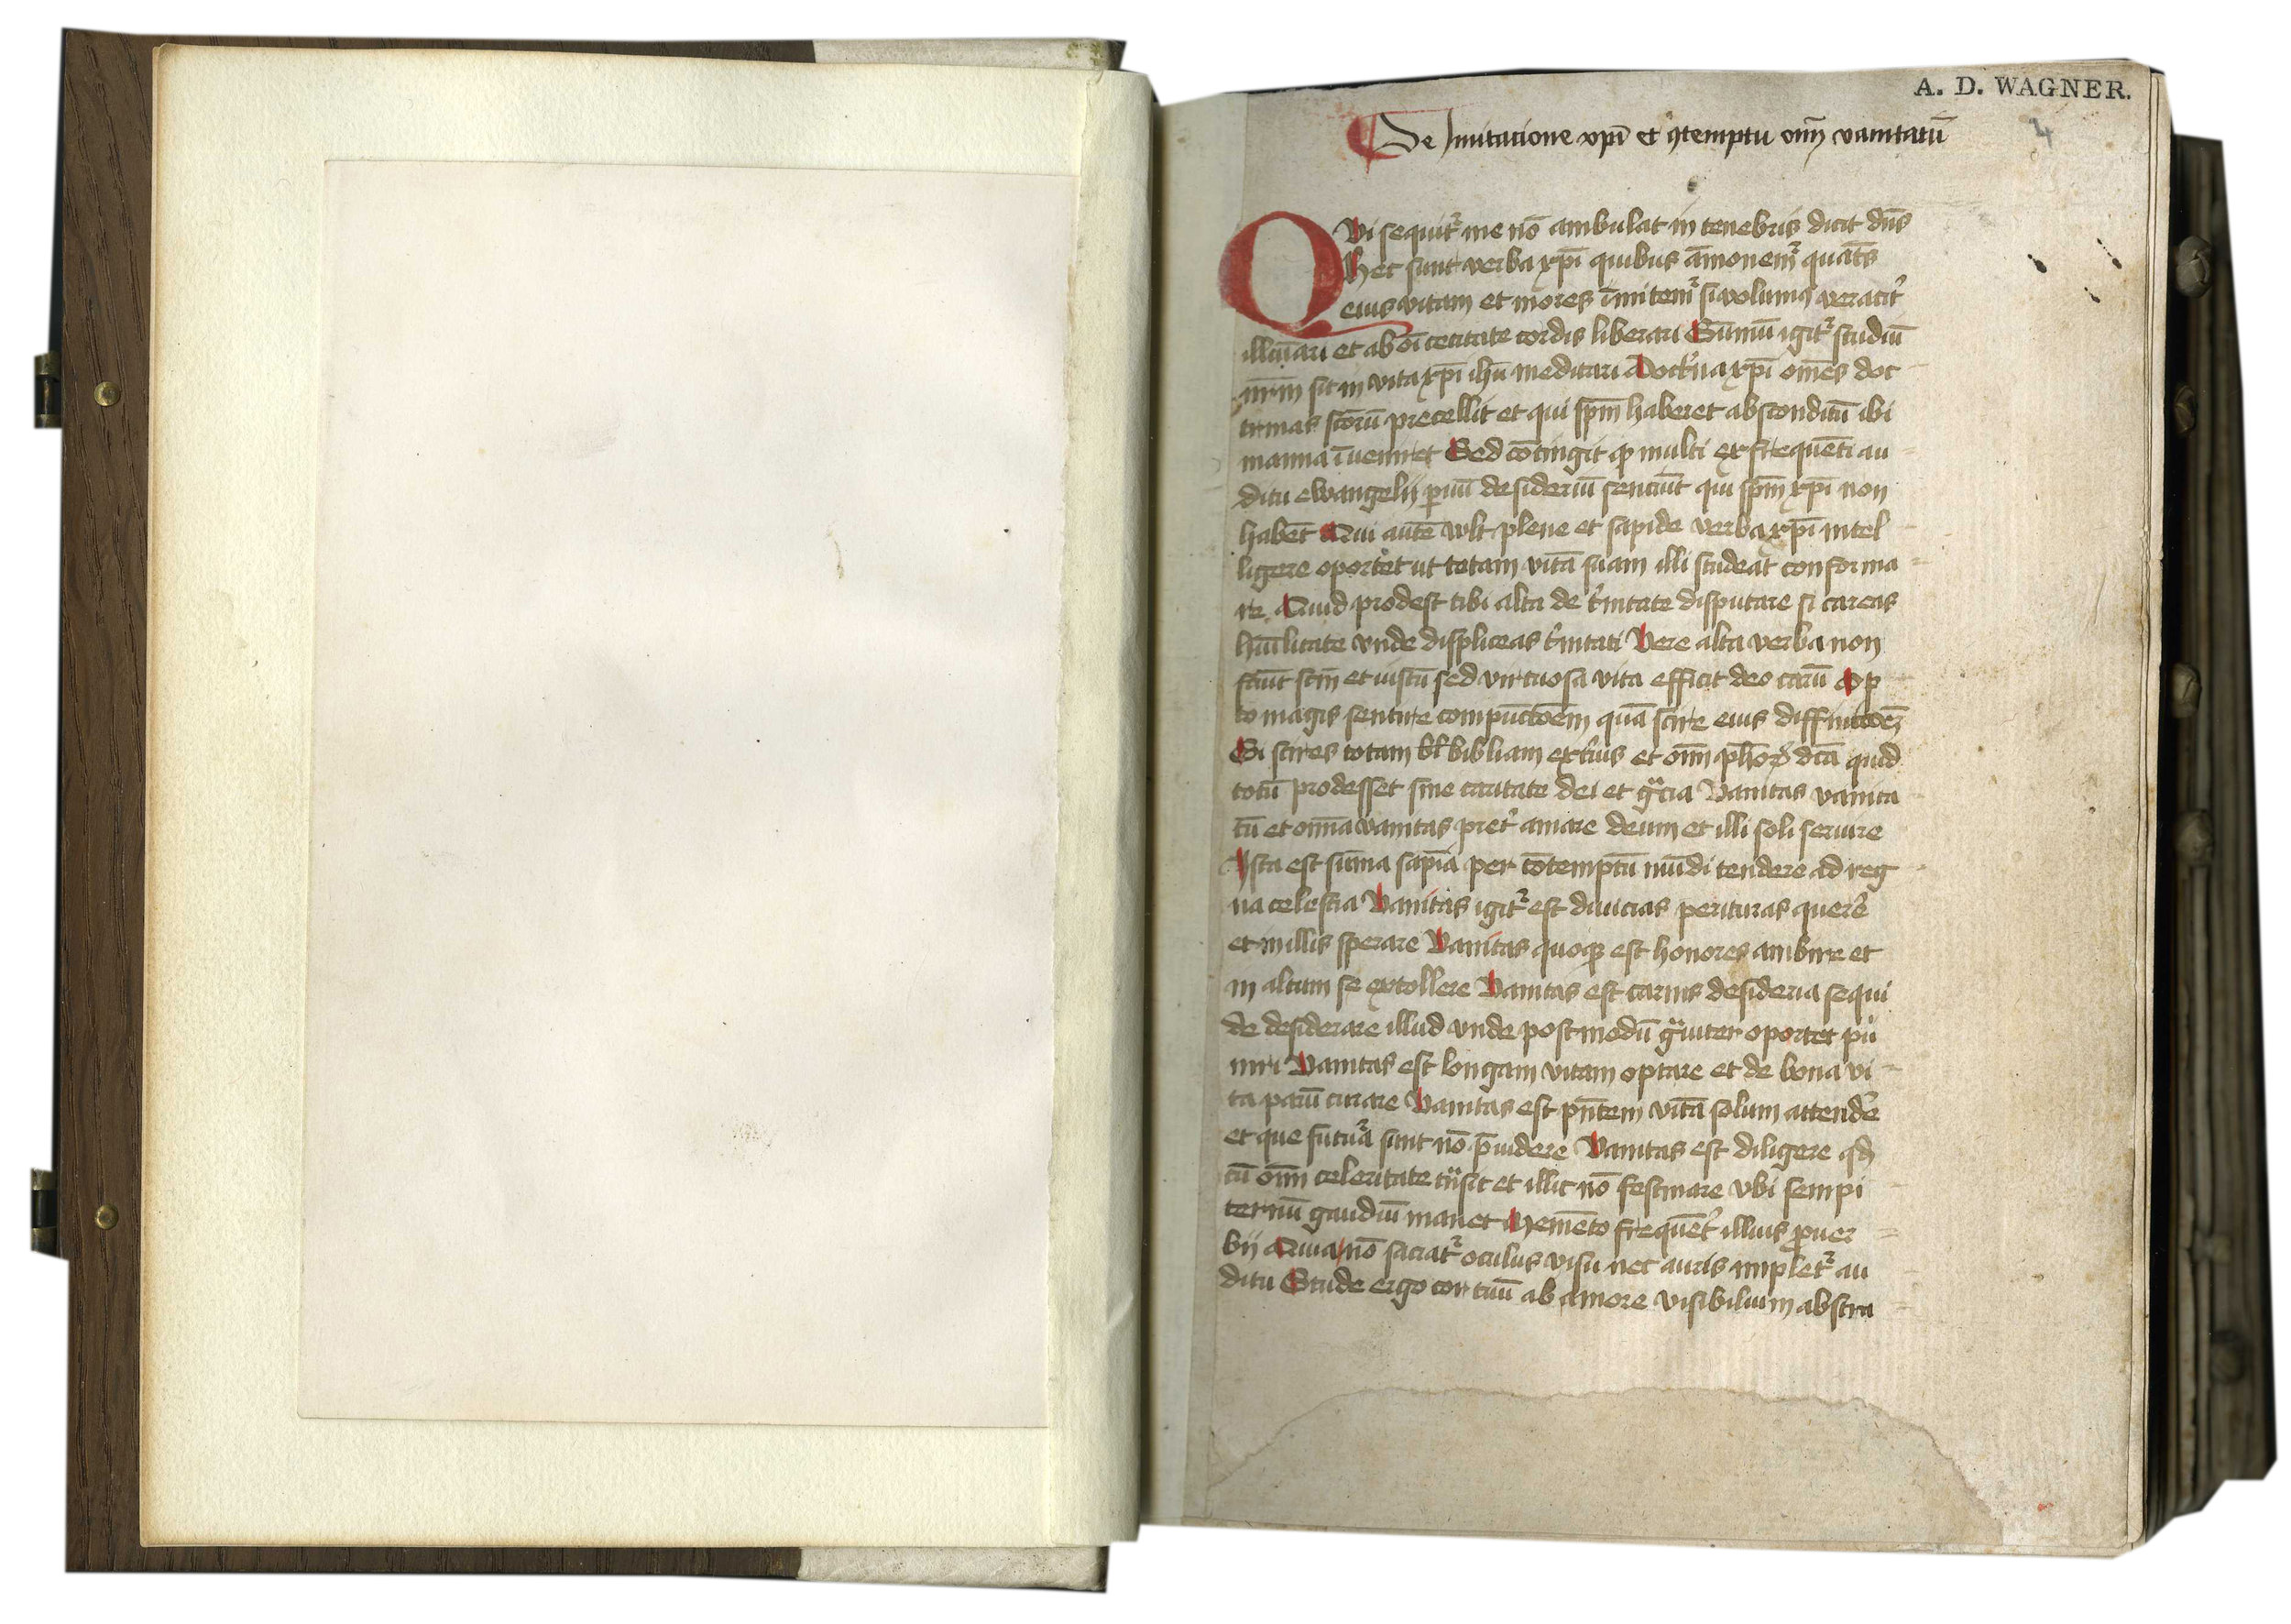 A. D. WAGNER.
De Imitatione xpi et ꝯtemptu oīm vanitatū
4
QVi sequit̉ me nō ambulat in tenebris dicit dn̄s
Hec sunt verba xp̄i quibus āmonem̉ quāt̄s
eius vitam et mores īmitem̉ si volumꝰ veracit̉
illūinari et ab oī cecitate cordis liberari Sūmū igit̉ studiū
nr̄m sit in vita xp̄i ihū meditari Doct̉na xp̄i omēs doc
trinas sc̄orū precellit et qui sp̄m haberet absconditū ibi
manna īueniret Sed cōtingit ꝙ multi ex frequēti au
ditu ewangelij ꝑuū desideriū senciūt qui sp̄m xp̄i non
habēt Qui autē wlt plene et sapide verba xp̄i intel
ligere oportet ut totam vitā suam illi studeat conforma
re Quid prodest tibi alta de t̉nitate disputare si careas
hūilitate vnde displiceas t̉nitati Vere alta verba non
faciūt sc̄m et iustū sed virtuosa vita efficit deo carū Op
to magis sentire compūctōem quā scire eius diffinitōeꝫ
Si scires totam bibliam ext̉ius et oīm ph̄oꝝ dc̄a quid
totū prodesset sine caritate dei et gr̄cia Vanitas vanita
tū et omīa vanitas pret̉ amare deum et illi soli seruire
Ista est sūma sapīa per cōtemptū mūdi tendere ad reg
na celestia Vanitas igit̉ est diuicias perituras querē
et in illis sperare Vanitas quoqꝫ est honores ambire et
in altum se extollere Vanitas est carnis desideria sequi
de desiderare illud vnde postmodū gͣuiter oportet pu
niri Vanitas est longam vitam optare et de bona vi
ta parū curare Vanitas est pn̄tem vitā solum attendē
et que futura sunt nō p̄uidere Vanitas est diligere qd̄
cū oīm celeritate tͣnsit et illic nō festinare vbi sempi
ternū gaudiū manet Memēto frequēt̉ illius ꝓuer
bij Quia nō saciat̉ oculus visu nec auris implet̉ au
ditu Stude ergo cor tuū ab amore visibilium abstra